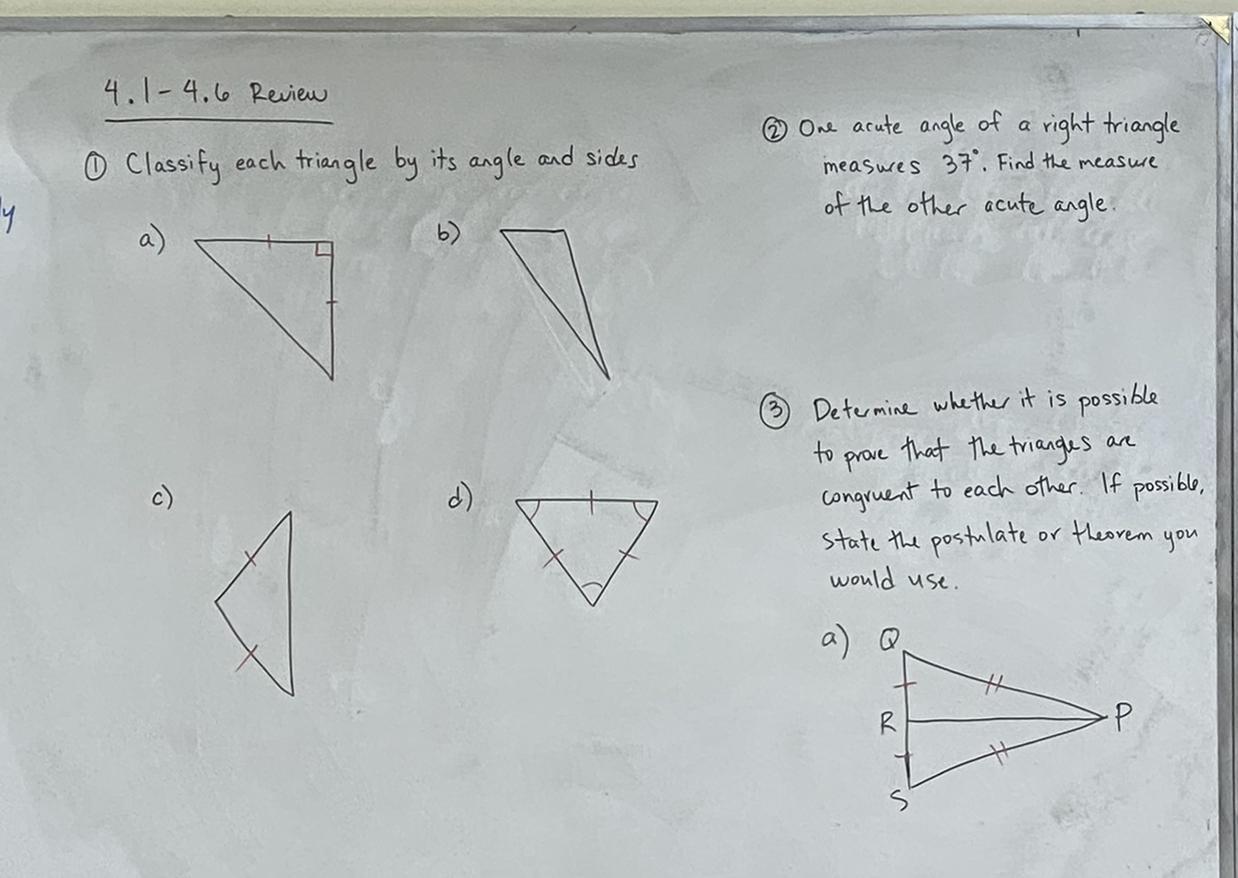 4.1 - 4.6 Review
① Classify each triangle by its angle and sides
a)
b)
c)
d)
② One acute angle of a right triangle
measures 37°. Find the measure
of the other acute angle.
③ Determine whether it is possible
to prove that the trianges are
congruent to each other. If possible,
state the postulate or theorem you
would use.
a) Q
R
P
S
y